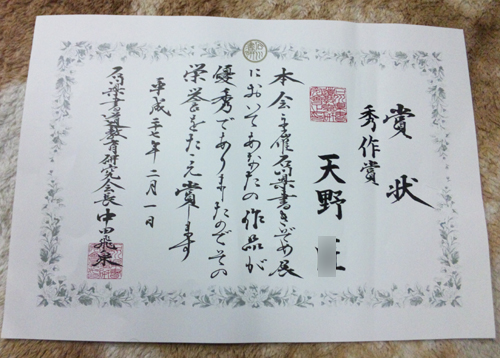 賞状
秀作賞
天野
本会主催石川県書きぞめ展
においてあなたの作品が
優秀でありましたのでその
栄誉をたゝえ賞します
平成二十七年二月一日
石川県書道教育研究会会長 中田